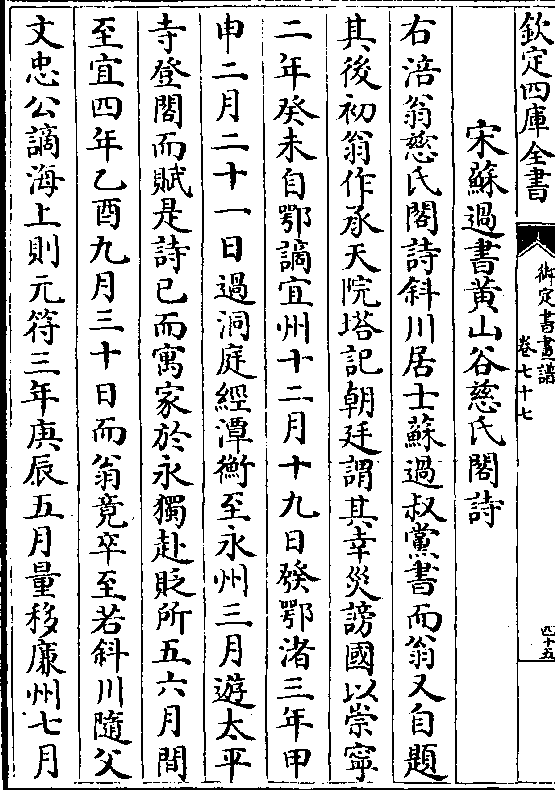 欽定四庫全書
御定書畫譜
卷七十七
四十五
宋蘇過書黄山谷慈氏閣詩
右涪翁慈氏閣詩斜川居士蘇過叔黨書而翁又自題
其後初翁作承天院塔記朝廷謂其幸災謗國以崇寧
二年癸未自鄂謫宜州十二月十九日發鄂渚三年甲
申二月二十一日過洞庭經潭衡至永州三月遊太平
寺登閣而賦是詩已而寓家於永獨赴貶所五六月間
至宜四年乙酉九月三十日而翁竟卒至若斜川隨父
文忠公謫海上則元符三年庚辰五月量移廉州七月